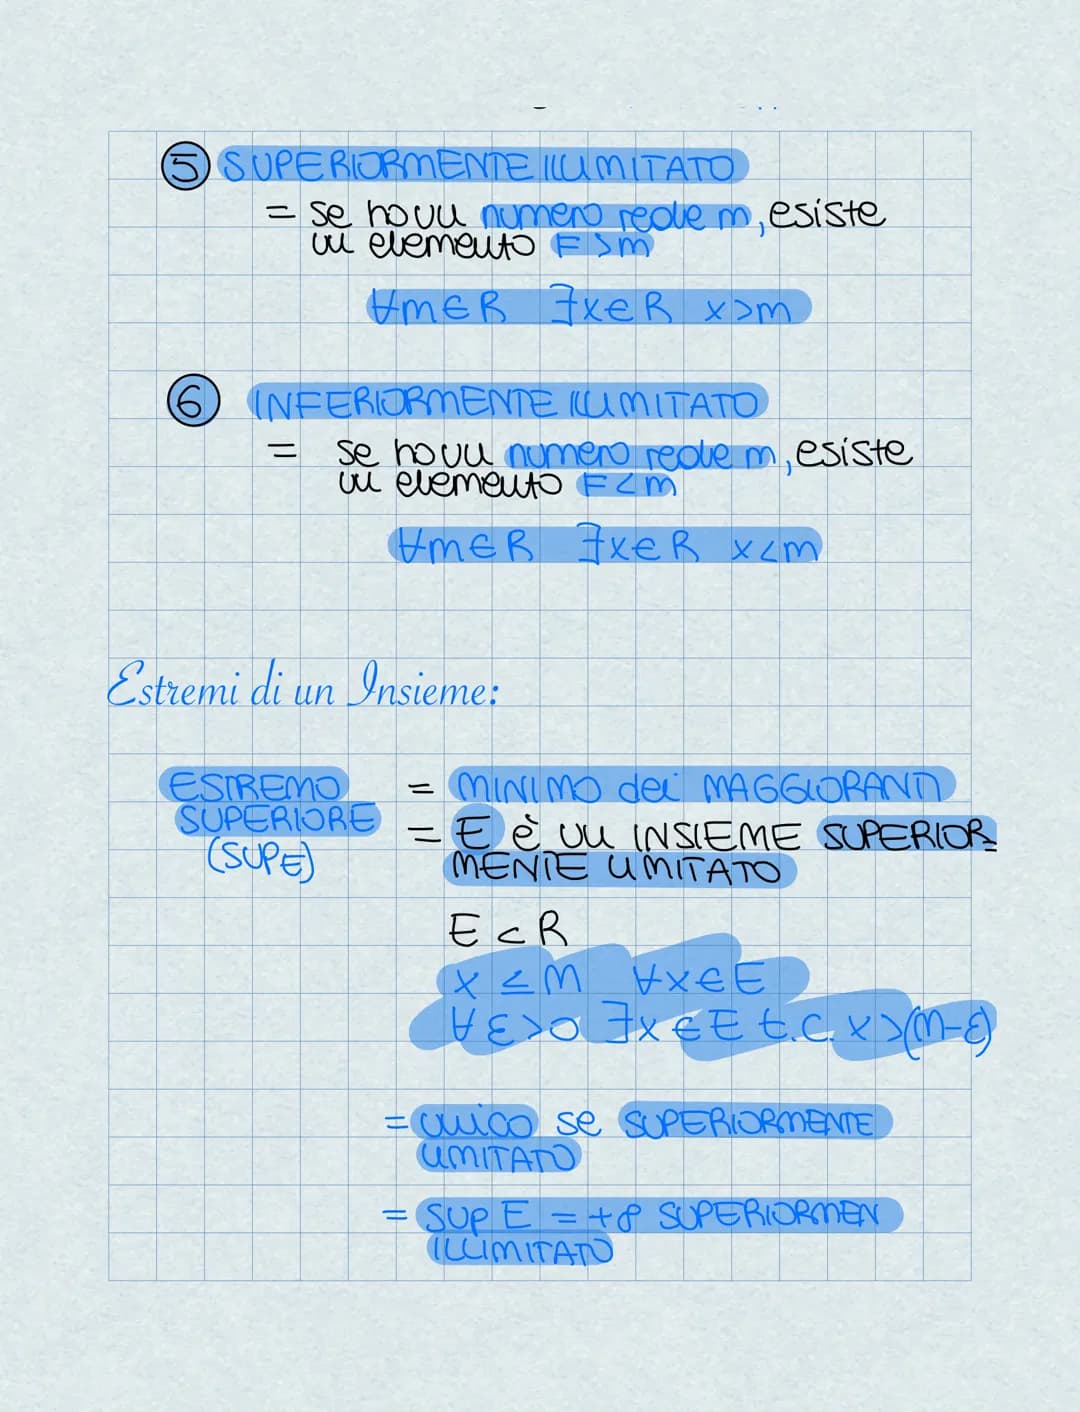 5 SUPERIORMENTE ILLIMITATO
= se novu numero reale m, esiste
un elemento E>m
∀m∈R ∃x∈R x>m
6 INFERIORMENTE ILLIMITATO
= se novu numero reale m, esiste
un elemento E<m
∀m∈R ∃x∈R x<m
Estremi di un Insieme:
ESTREMO SUPERIORE (SUPE)
= MINIMO dei MAGGIORANTI
= E è un INSIEME SUPERIOR
MENTE LIMITATO
E ⊂ R
x ≤ M ∀x∈E
∀ε>0 ∃x∈E t.c. x>(M-ε)
= unico se SUPERIORMENTE
LIMITATO
= SUP E = +∞ SUPERIORMEN
ILLIMITATO